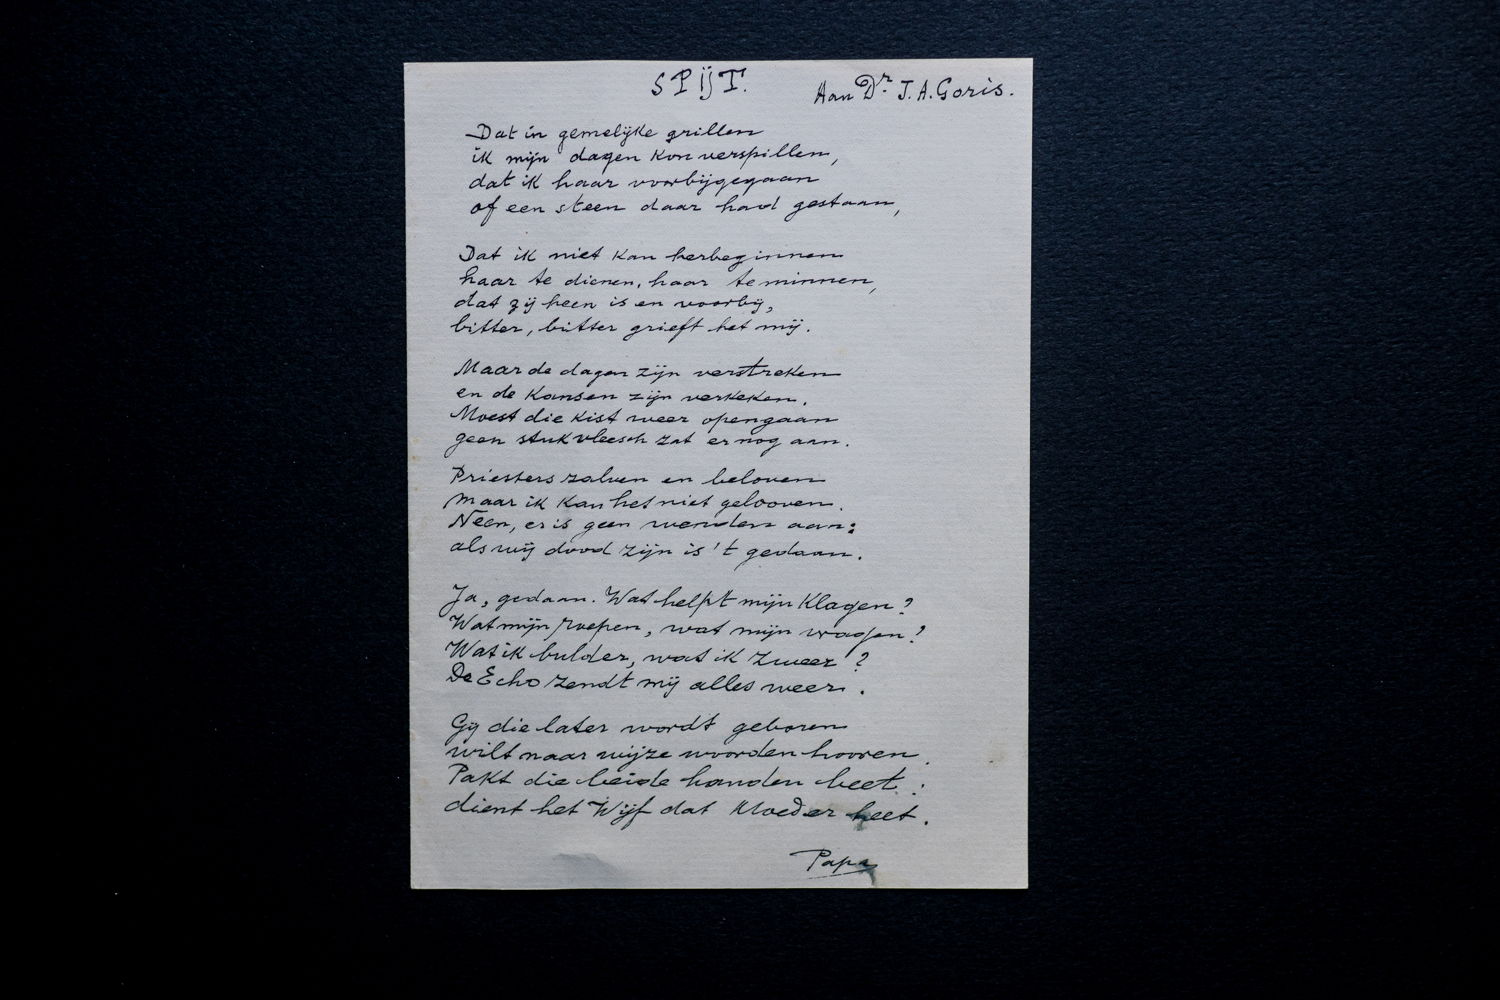 SPIJT.
Aan Dr J. A. Goris.
Dat in gemelijke grillen
ik mijn dagen kon verspillen,
dat ik haar voorbijgegaan
of een steen daar had gestaan,
Dat ik niet kan herbeginnen
haar te dienen, haar te minnen,
dat zij heen is en voorbij,
bitter, bitter grieft het mij.
Maar de dagen zijn verstreken
en de kansen zijn verkeken.
Moest die kist weer opengaan
geen stuk vleesch zat er nog aan.
Priesters zalven en beloven
maar ik kan het niet gelooven.
Neen, er is geen wenden aan:
als wij dood zijn is 't gedaan.
Ja, gedaan. Wat helpt mijn klagen?
Wat mijn roepen, wat mijn wagen?
Wat ik bulder, wat ik zweer?
De Echo zendt mij alles weer.
Gij die later wordt geboren
wilt naar wijze woorden hooren.
Pakt die beide handen beet:
dient het Wijf dat Moeder heet.
Papa